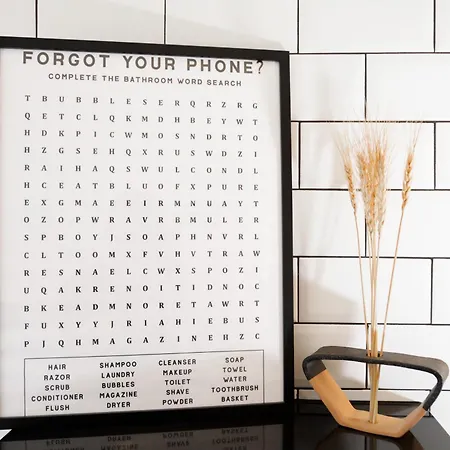 FORGOT YOUR PHONE?
COMPLETE THE BATHROOM WORD SEARCH
T B U B B L E S E R Q R Z R G
Q E T C L Q K M D H B E Y W T
H D K P I C W M O S N D R T O
H Z G S E H Q X R U S W D Z I
R A I H A Q S W U L C O N D L
H C E A T B L U O F X P U R E
E X G M A E E I R M N U A Y T
O Z O P W R A V R B M U L E R
S P B O Y J S O A P H N V R L
C L T O O M X F V H V T R A W
R E S N A E L C W X S P O Z I
U Q A K R E N O I T I D N O C
B K E A D M N O R E T A W R T
F U X Y Y J R I A H I E B U S
P J Q H M A G A Z I N E H Z C
HAIR SHAMPOO CLEANSER SOAP
RAZOR LAUNDRY MAKEUP TOWEL
SCRUB BUBBLES TOILET WATER
CONDITIONER MAGAZINE SHAVE TOOTHBRUSH
FLUSH DRYER POWDER BASKET